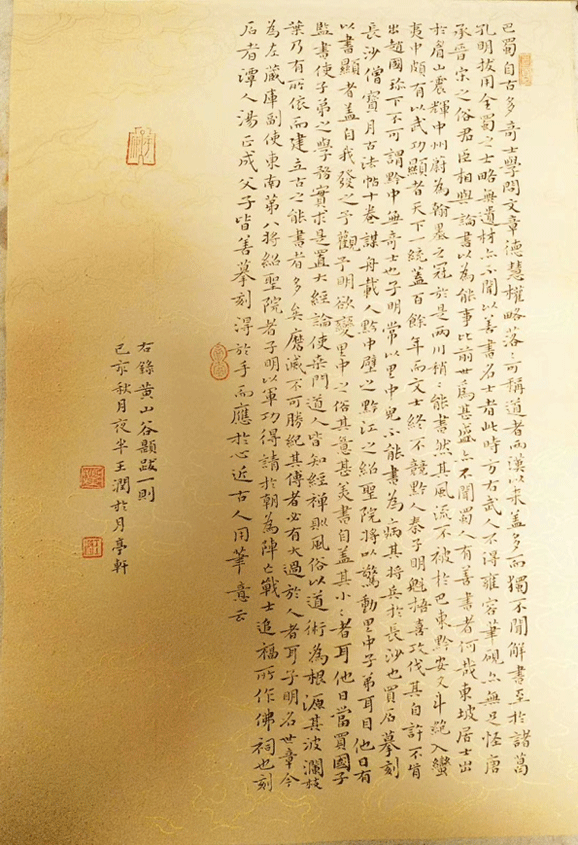 巴蜀自古多奇士學問文章德慧權略落〻可稱道者兩漢以來蓋多而獨不聞解書至於諸葛
孔明拔用全蜀之士略無遺材亦不聞以善書名士者此時方右武人不得雍容筆硯亦無足怪唐
承晉宋之俗君臣相與論書以為能事比前世爲甚盛亦不聞蜀人有善書者何哉東坡居士出
於眉山震輝中州蔚為翰墨之冠於是兩川稍〻能書然其風流不被於巴東黔安又斗絕入蠻
夷中頗有以武功顯者天下一統蓋百餘年而文士終不競黔人秦子明魁梧喜攻伐其自許不肯
出趙國珍下不可謂黔中無奇士也子明常以里中兒不能書為病其將兵於長沙也買石摹刻
長沙僧寶月古法帖十卷謀舟載入黔中壁之黔江之紹聖院將以驚動里中子弟耳目他日有
以書顯者蓋自我發之予觀子明欲變里中之俗其意甚美書自蓋其小〻者耳他日當買國子
監書使子弟之學務實求是置大經論使桑門道人皆知經禪則風俗以道術為根源其波瀾枝
葉乃有所依而建立古之能書者多矣磨滅不可勝紀其傳者必有大過於人者耳子明名世章今
為左藏庫副使東南第八將紹聖院者子明以軍功得請於朝為陣亡戰士追福所作佛祠也刻
石者潭人湯正成父子皆善摹刻得於手而應於心近古人用筆意云
右錄黃山谷題跋一則
己亥秋月夜半王潤於月亭軒